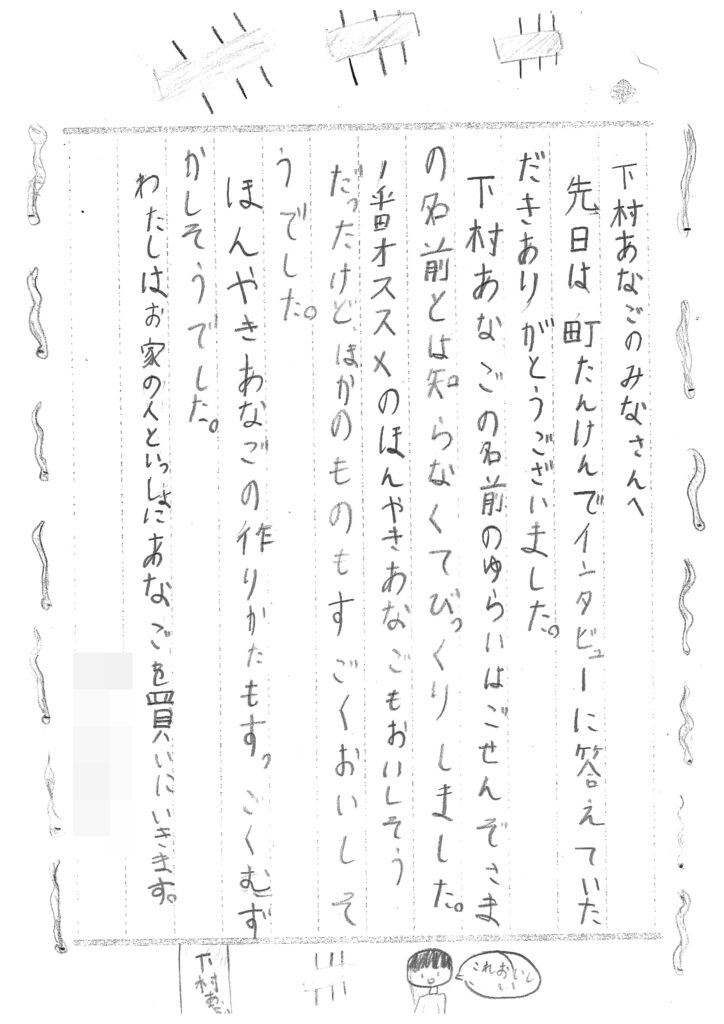 下村あなごのみなさんへ
先日は町たんけんでインタビューに答えていた
だきありがとうございました。
下村あなごの名前のゆらいはごせんぞさま
の名前とは知らなくてびっくりしました。
1番オススメのほんやきあなごもおいしそう
だったけど、ほかのものもすごくおいしそ
うでした。
ほんやきあなごの作りかたもすっごくむず
かしそうでした。
わたしはお家の人といっしょにあなごを買いにいきます。
これおいし
い
下村あなご